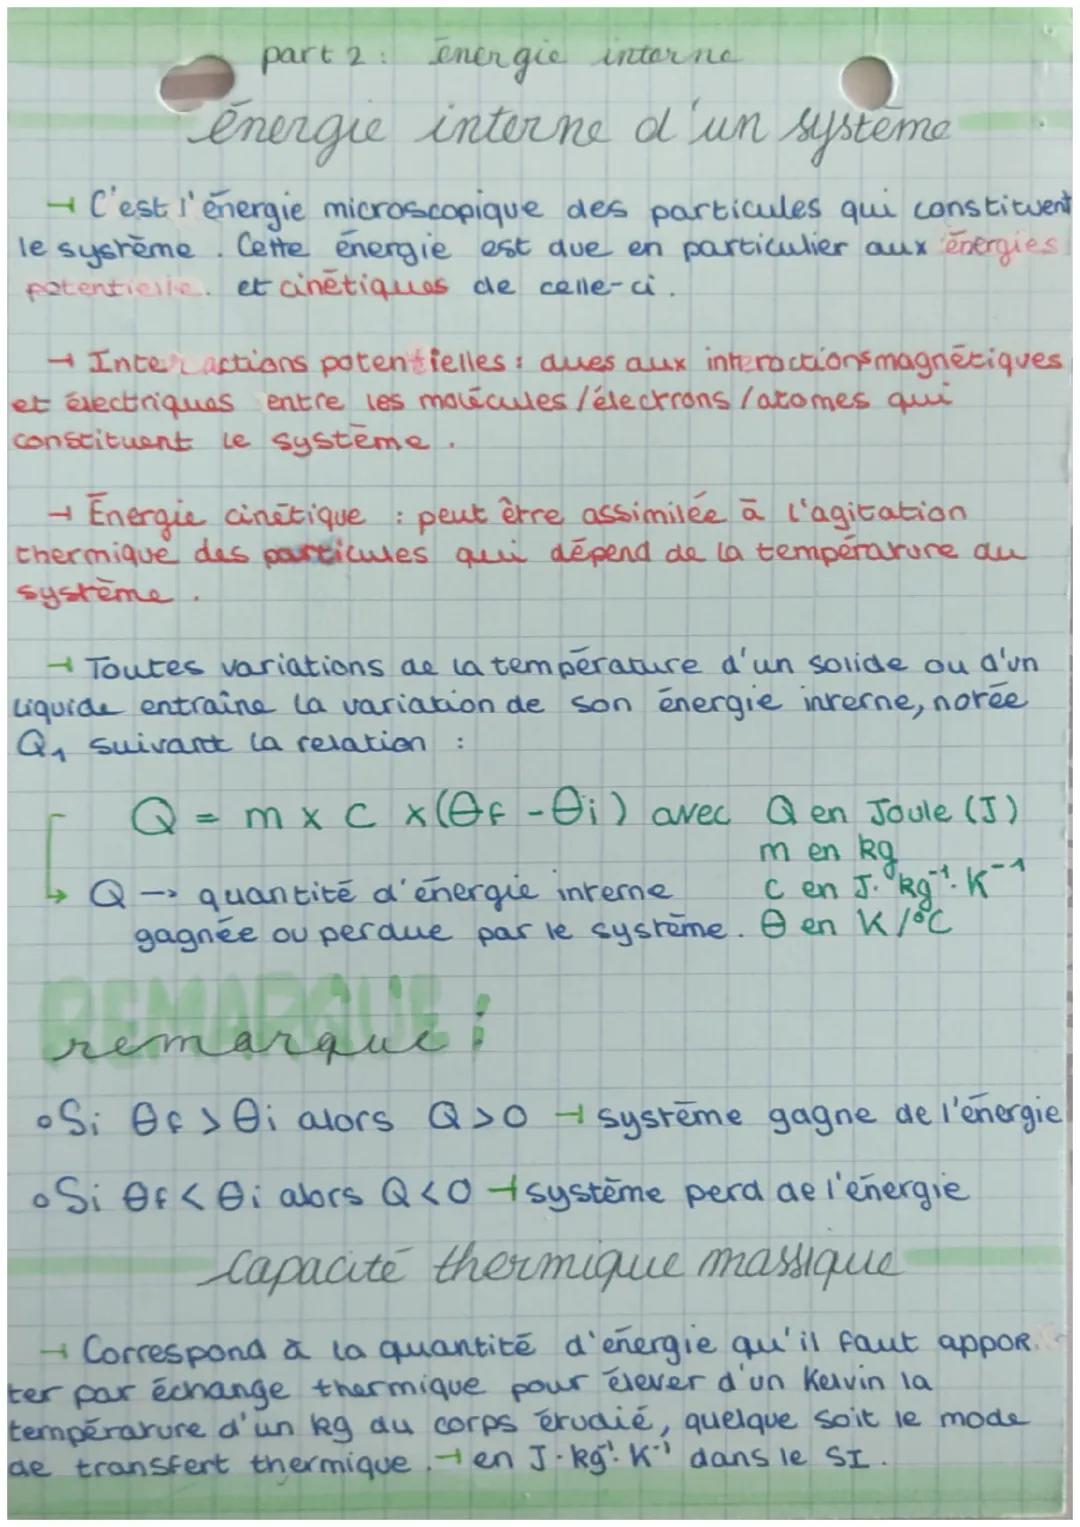 part 2 : énergie interne
énergie interne d'un système
→ C'est l'énergie microscopique des particules qui constituent
le système. Cette énergie est due en particulier aux énergies
potentielle. et cinétiques de celle-ci.
→ Interactions potentielles : dues aux interactions magnétiques
et électriques entre les molécules/électrons/atomes qui
constituent le système.
→ Énergie cinétique : peut être assimilée à l'agitation
thermique des particules qui dépend de la température du
système.
→ Toutes variations de la température d'un solide ou d'un
liquide entraîne la variation de son énergie interne, notée
Q, suivant la relation :
Q = m x c x (θf - θi) avec Q en Joule (J)
m en kg
↳ Q → quantité d'énergie interne c en J.kg⁻¹.K⁻¹
gagnée ou perdue par le système. θ en K/°C
REMARQUE
remarque :
• Si θf > θi alors Q>0 → système gagne de l'énergie
• Si θf < θi alors Q<0 → système perd de l'énergie
capacité thermique massique
→ Correspond à la quantité d'énergie qu'il faut appor.
ter par échange thermique pour élever d'un Kelvin la
température d'un kg du corps étudié, quelque soit le mode
de transfert thermique. → en J.kg⁻¹.K⁻¹ dans le SI.